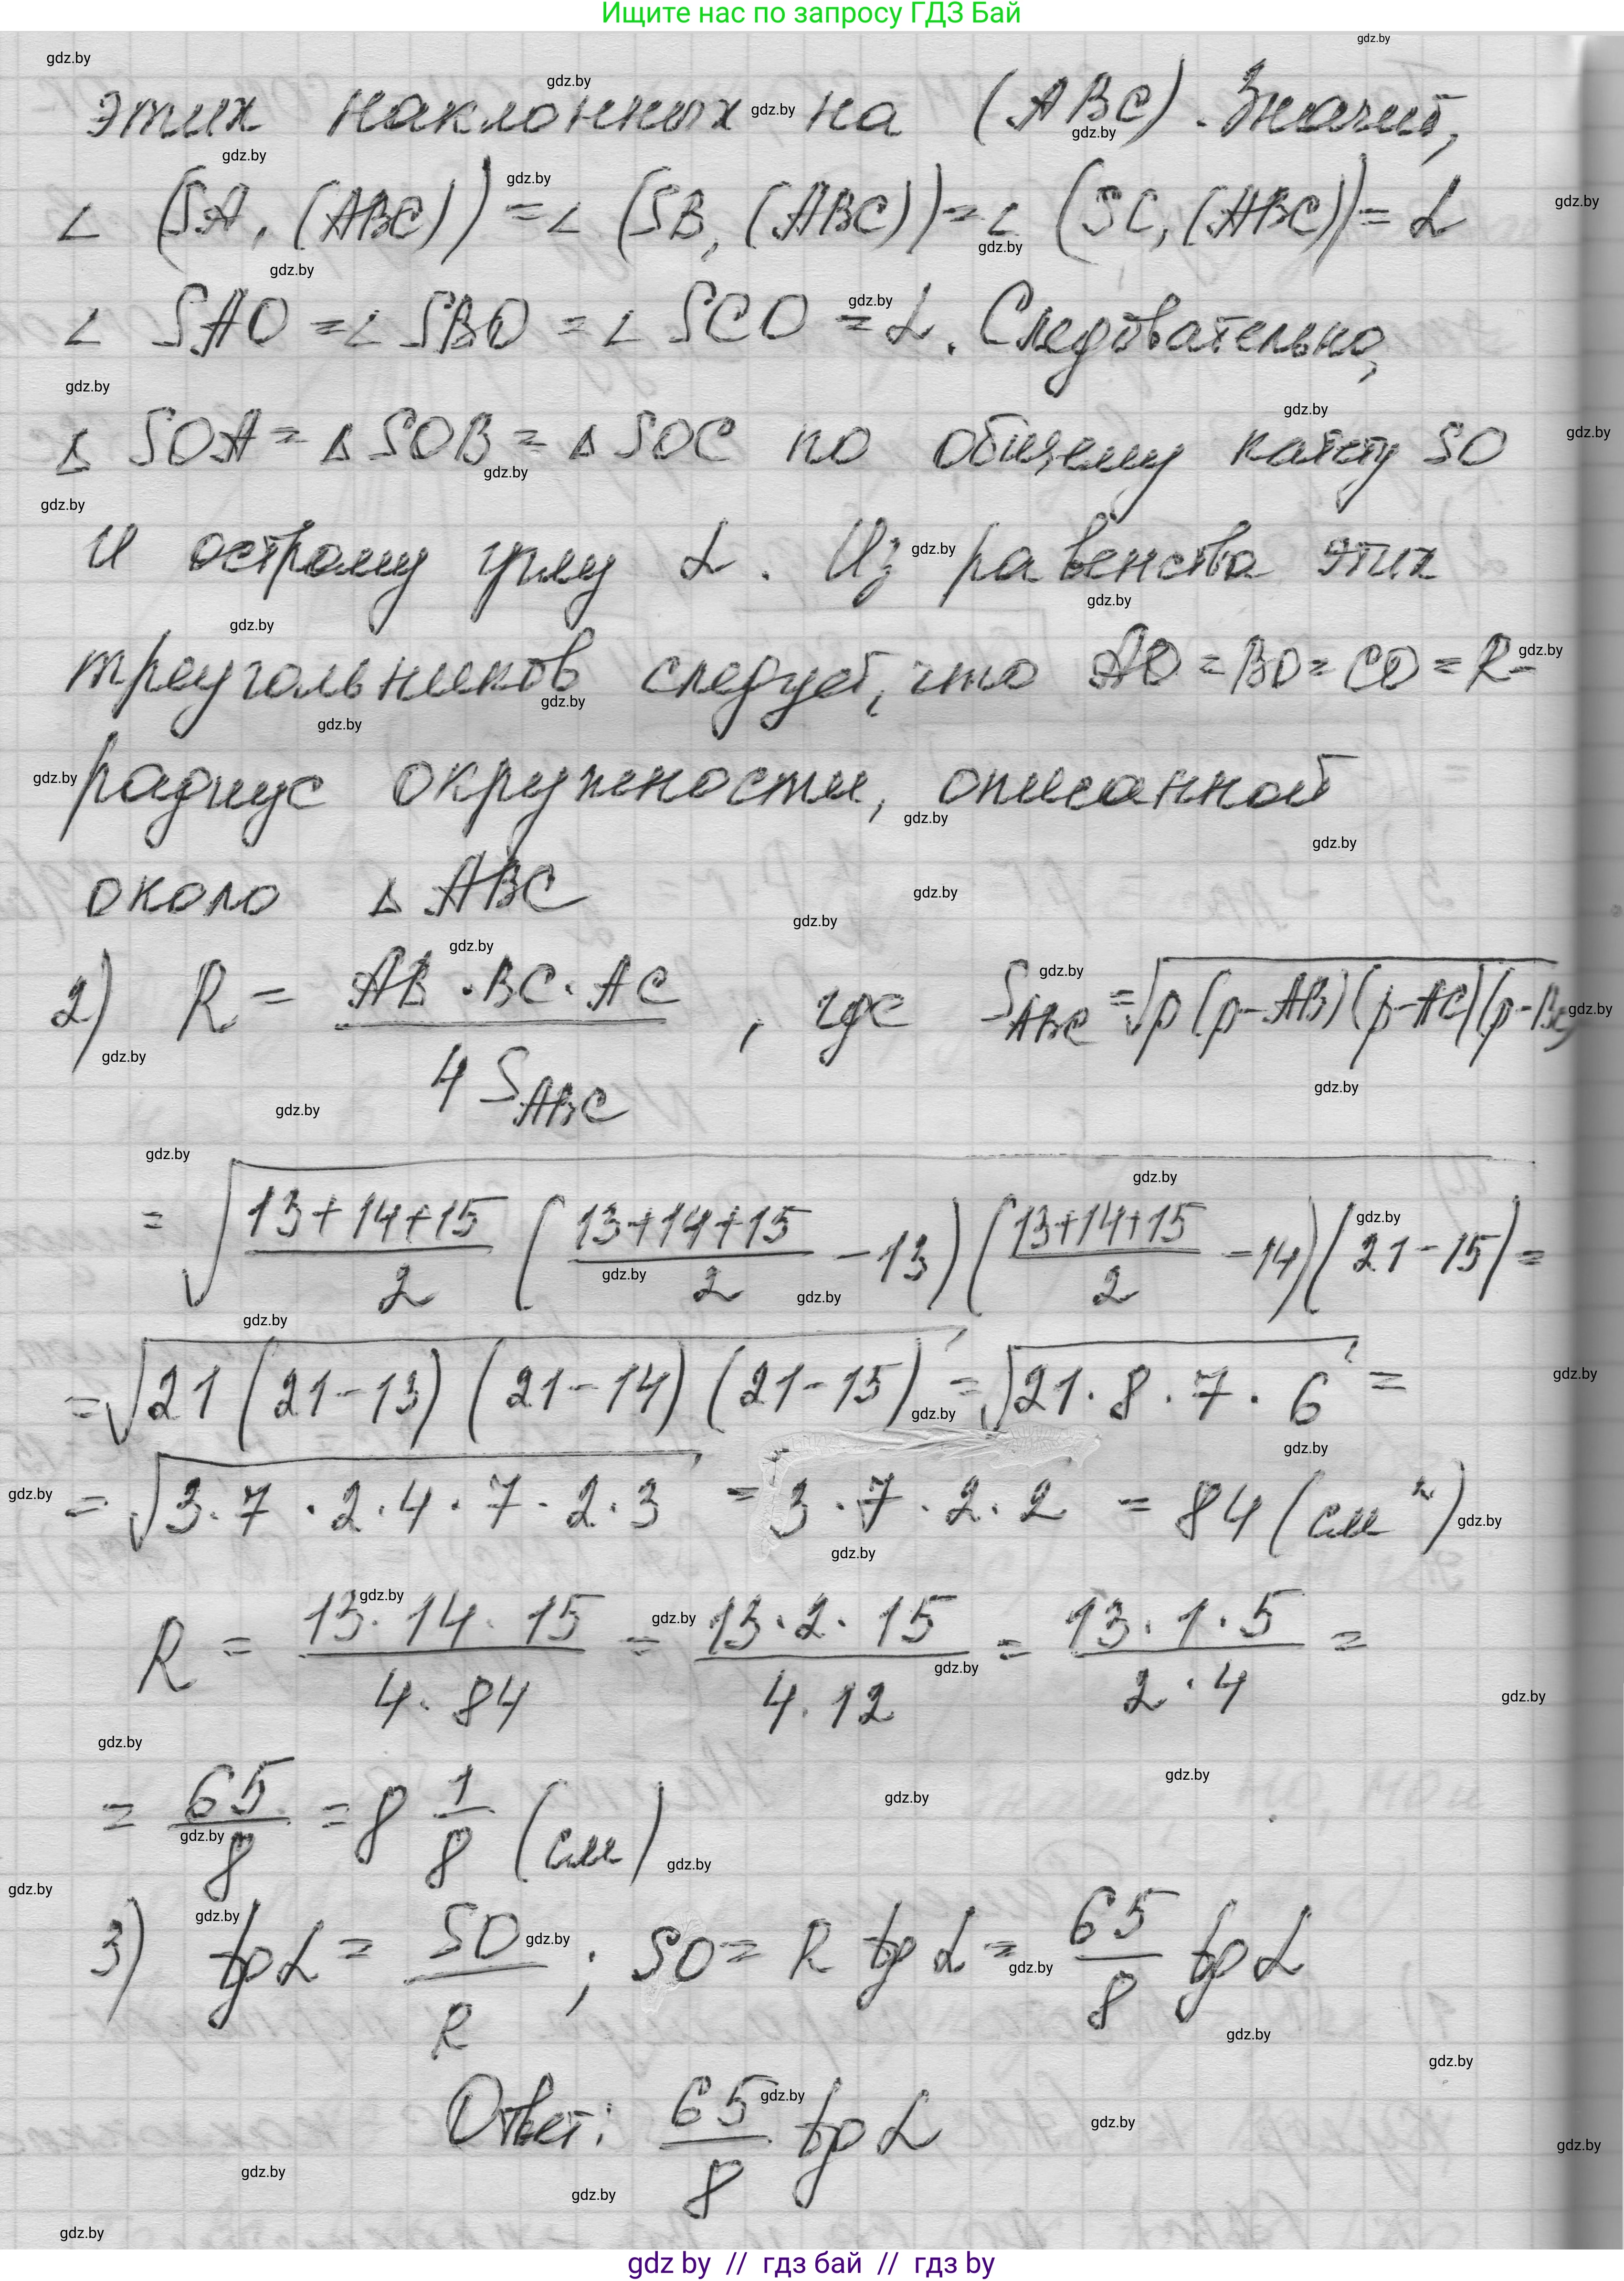 Ищите нас по запросу ГДЗ Бай
этих наклонных на (ABC). Значит,
∠ (SA, (ABC)) = ∠ (SB, (ABC)) = ∠ (SC, (ABC)) = α
∠ SAO = ∠ SBO = ∠ SCO = α. Следовательно,
Δ SOA = Δ SOB = Δ SOC по общему катету SO
и острому углу α. Из равенства этих
треугольников следует, что AO = BO = CO = R -
радиус окружности, описанной
около Δ ABC
2) R = (AB · BC · AC) / (4 S_ABC), где S_ABC = √(p (p-AB)(p-AC)(p-BC)
= √((13+14+15)/2 ((13+14+15)/2 - 13)((13+14+15)/2 - 14)(21-15)) =
= √(21 (21-13) (21-14) (21-15)) = √(21 · 8 · 7 · 6) =
= √(3 · 7 · 2 · 4 · 7 · 2 · 3) = 3 · 7 · 2 · 2 = 84 (см²)
R = (13 · 14 · 15)/(4 · 84) = (13 · 2 · 15)/(4 · 12) = (13 · 1 · 5)/(2 · 4) =
= 65/8 = 8 1/8 (см)
3) tg α = SO/R; SO = R tg α = 65/8 tg α
Ответ: 65/8 tg α
gdz by // гдз бай // гдз by